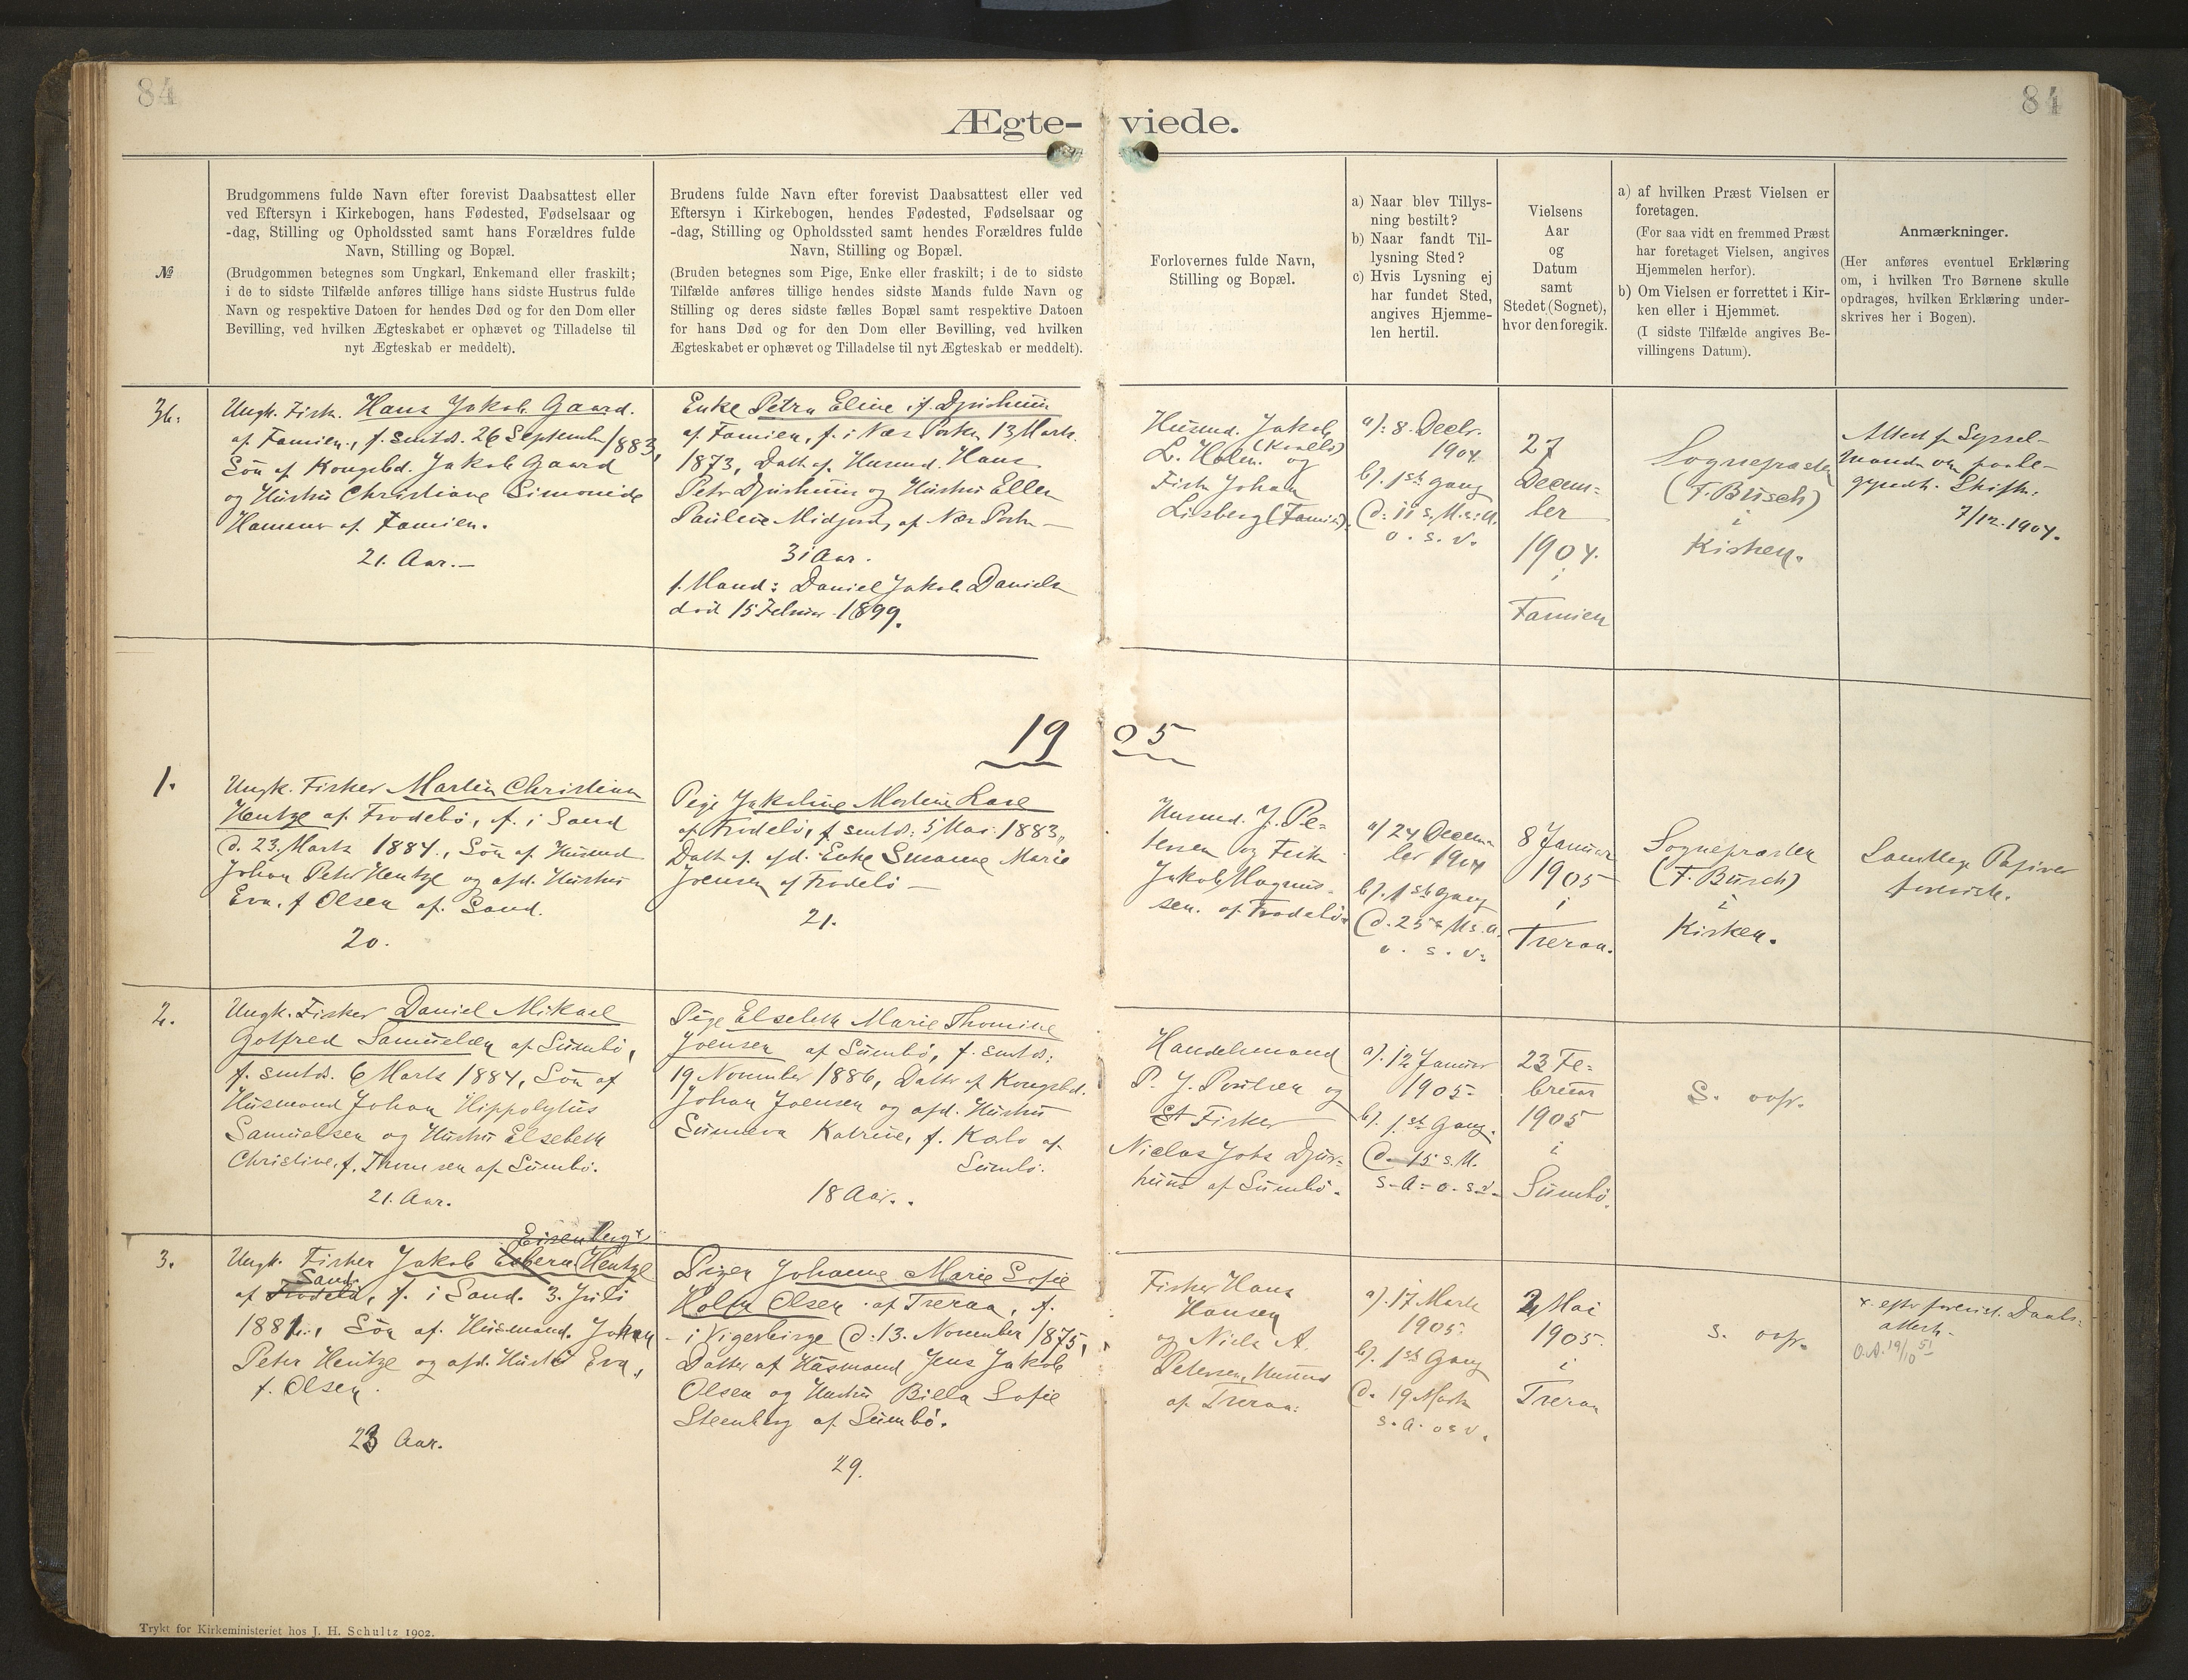 84
84
Ægte-
viede.
№
Brudgommens fulde Navn efter forevist Daabsattest eller
ved Eftersyn i Kirkebogen, hans Fødested, Fødselsaar og
-dag, Stilling og Opholdssted samt hans Forældres fulde
Navn, Stilling og Bopæl.
(Brudgommen betegnes som Ungkarl, Enkemand eller fraskilt;
i de to sidste Tilfælde anføres tillige hans sidste Hustrus fulde
Navn og respektive Datoen for hendes Død og for den Dom eller
Bevilling, ved hvilken Ægteskabet er ophævet og Tilladelse til
nyt Ægteskab er meddelt).
Brudens fulde Navn efter forevist Daabsattest eller ved
Eftersyn i Kirkebogen, hendes Fødested, Fødselsaar og
-dag, Stilling og Opholdssted samt hendes Forældres fulde
Navn, Stilling og Bopæl.
(Bruden betegnes som Pige, Enke eller fraskilt; i de to sidste
Tilfælde anføres tillige hendes sidste Mands fulde Navn og
Stilling og deres sidste fælles Bopæl samt respektive Datoen
for hans Død og for den Dom eller Bevilling, ved hvilken
Ægteskabet er ophævet og Tilladelse til nyt Ægteskab er meddelt).
Forlovernes fulde Navn,
Stilling og Bopæl.
a) Naar blev Tillys-
ning bestilt?
b) Naar fandt Til-
lysning Sted?
c) Hvis Lysning ej
har fundet Sted,
angives Hjemme-
len hertil.
Vielsens
Aar
og
Datum
samt
Stedet (Sognet),
hvor den foregik.
a) af hvilken Præst Vielsen er
foretagen.
(For saa vidt en fremmed Præst
har foretaget Vielsen, angives
Hjemmelen herfor).
b) Om Vielsen er forrettet i Kir-
ken eller i Hjemmet.
(I sidste Tilfælde angives Be-
villingens Datum).
Anmærkninger.
(Her anføres eventuel Erklæring
om, i hvilken Tro Børnene skulle
opdrages, hvilken Erklæring under-
skrives her i Bogen).
Ungk. Fisk. Hans Jakob Gaard.
af Famien., f. smtds. 26 September 1883,
Søn af Kongsbd. Jakob Gaard
og Hustru Christiane Simonide
af Famien.
21. Aar.—
Enke Petra Eline, f. Djurhuus
af Famien, f. i Næs Porkn 13 Marts
1873, Datt. af Husmd. Hans
Petr Djurhuus og Hustru Ellen
Pauline Midjord, af Næs Porkn —
31 Aar.
f. Mand: Daniel Jakob Danielsn
død 15 Februar 1899.
Husmd. Jakob
L. Holm. og
Fiskr Johan
Lisberg (Famien).
a). 8. Decbr.
1904
b). 1ste Gang
o. s. v.
27
Decem-
ber
1904.
i
Famien
Sognepræsten
(F. Busch)
i
Kirken.
Attest fr Syssel-
manden om
Skifte.
7/12. 1904.
19 05
1.
Ungk. Fisker Martin Christian
Hentze af Frodebø, f. i Sand
d. 23. Marts 1884., Søn af Husmd
Johan Peter Hentze og afd. Hustru
Eva, f Olsen af Sand.
20.
Pige Jakobine
af Frodebø, f smtds: 5 Mai 1883.,
Datt. af afd. Enke Susanne Marie
Joensen af Frodebø —
21.
Husmd. J. Pe-
tersen og Fisk
Jakob Magnus-
sen. af Frodebø.
a) 24 Decem-
ber 1904
b). 1ste Gang
o. s. v.
8 Januar
1905
i
Treraa.
Sognepræsten
(F. Busch)
i
Kirken.
Samtlige Papirer
foreviste.
2.
Ungk. Fisker Daniel Mikael
Gotfred Samuelsen af Sumbø,
f. smtds. 6 Marts 1884, Søn af
Husmand Johan Hippolytus
Samuelsen og Hustru Elsebeth
Christine, f. Thomsen af Sumbø.
21. Aar.
Pige Elsebeth Marie Thomine
Joensen af Sumbø, f. smtds:
19 November 1886, Datter af Kongsbd.
Johan Joensen og afd. Hustru
Sunneva Katrine, f. af
Sumbø.
18 Aar..
Handelsmand
P. J. Poulsen og
Fisker
Niclas Djur-
huus af Sumbø.
a). 12 Januar
1905
b). 1ste Gang.
d. 15 s. M.
s. A. o. s. v.
23 Fe-
bruar
1905
i
Sumbø.
S. ovfr.
3.
Eisenberg x
Ungk. Fisker Jakob Hentze
Sand.
af Frodebø, f. i Sand. 3. Juli
1881., Søn af Husmand. Johan
Peter Hentze og afd. Hustru Eva,
f. Olsen.
23 Aar.
Pigen Johanne Marie Sofie
Holm Olsen af Treraa, f.
i Vigerbirge d: 13. November 1875,
Datter af Husmand Jens Jakob
Olsen og Hustru Billa Sofie
Steenberg af Sumbø.
29.
Fisker Hans
Hansen
og Niels A.
Petersen, Husmd
af Treraa.
a). 17 Marts
1905.
b). 1ste Gang
d. 19 Marts
s. A. osv.
2 Mai
1905.
i
Treraa
s. ovfr.
x. eftr forevist. Daabs-
attest.
O.A. 19/10 51
Trykt for Kirkeministeriet hos J. H. Schultz 1902.